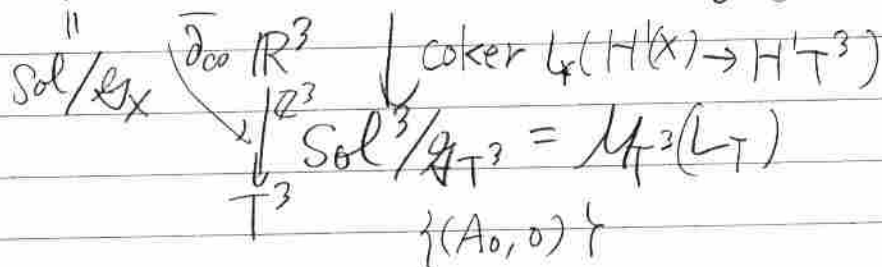 "
Sol/𝒢_X ∂̄_∞ ℝ³ ↓ coker 4_*(H'(X) → H'T³)
↓ ℤ³ Sol³/𝒢_{T³} = ℳ_{T³}(L_T)
T³
{(A₀, 0)}